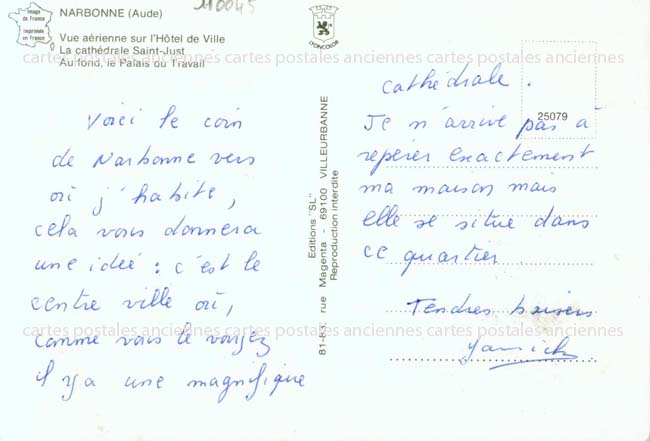 Image
de France
Imprimée
en France
NARBONNE (Aude)
110045
Vue aérienne sur l'Hôtel de Ville
La cathédrale Saint-Just
Au fond, le Palais du Travail
LYONCOLOR
cartes postales anciennes cartes postales anciennes cartes postales anciennes
Voici le coin
de Narbonne vers
où j'habite,
cela vous donnera
une idée : c'est le
centre ville où,
comme vous le voyez
il y a une magnifique
Editions "SL"
81-83, rue Magenta - 69100 VILLEURBANNE
Reproduction interdite
25079
cathédrale.
Je n'arrive pas à
repérer exactement
ma maison mais
elle se situe dans
ce quartier.
Tendres baisers
Yannick
cartes postales anciennes cartes postales anciennes cartes postales anciennes